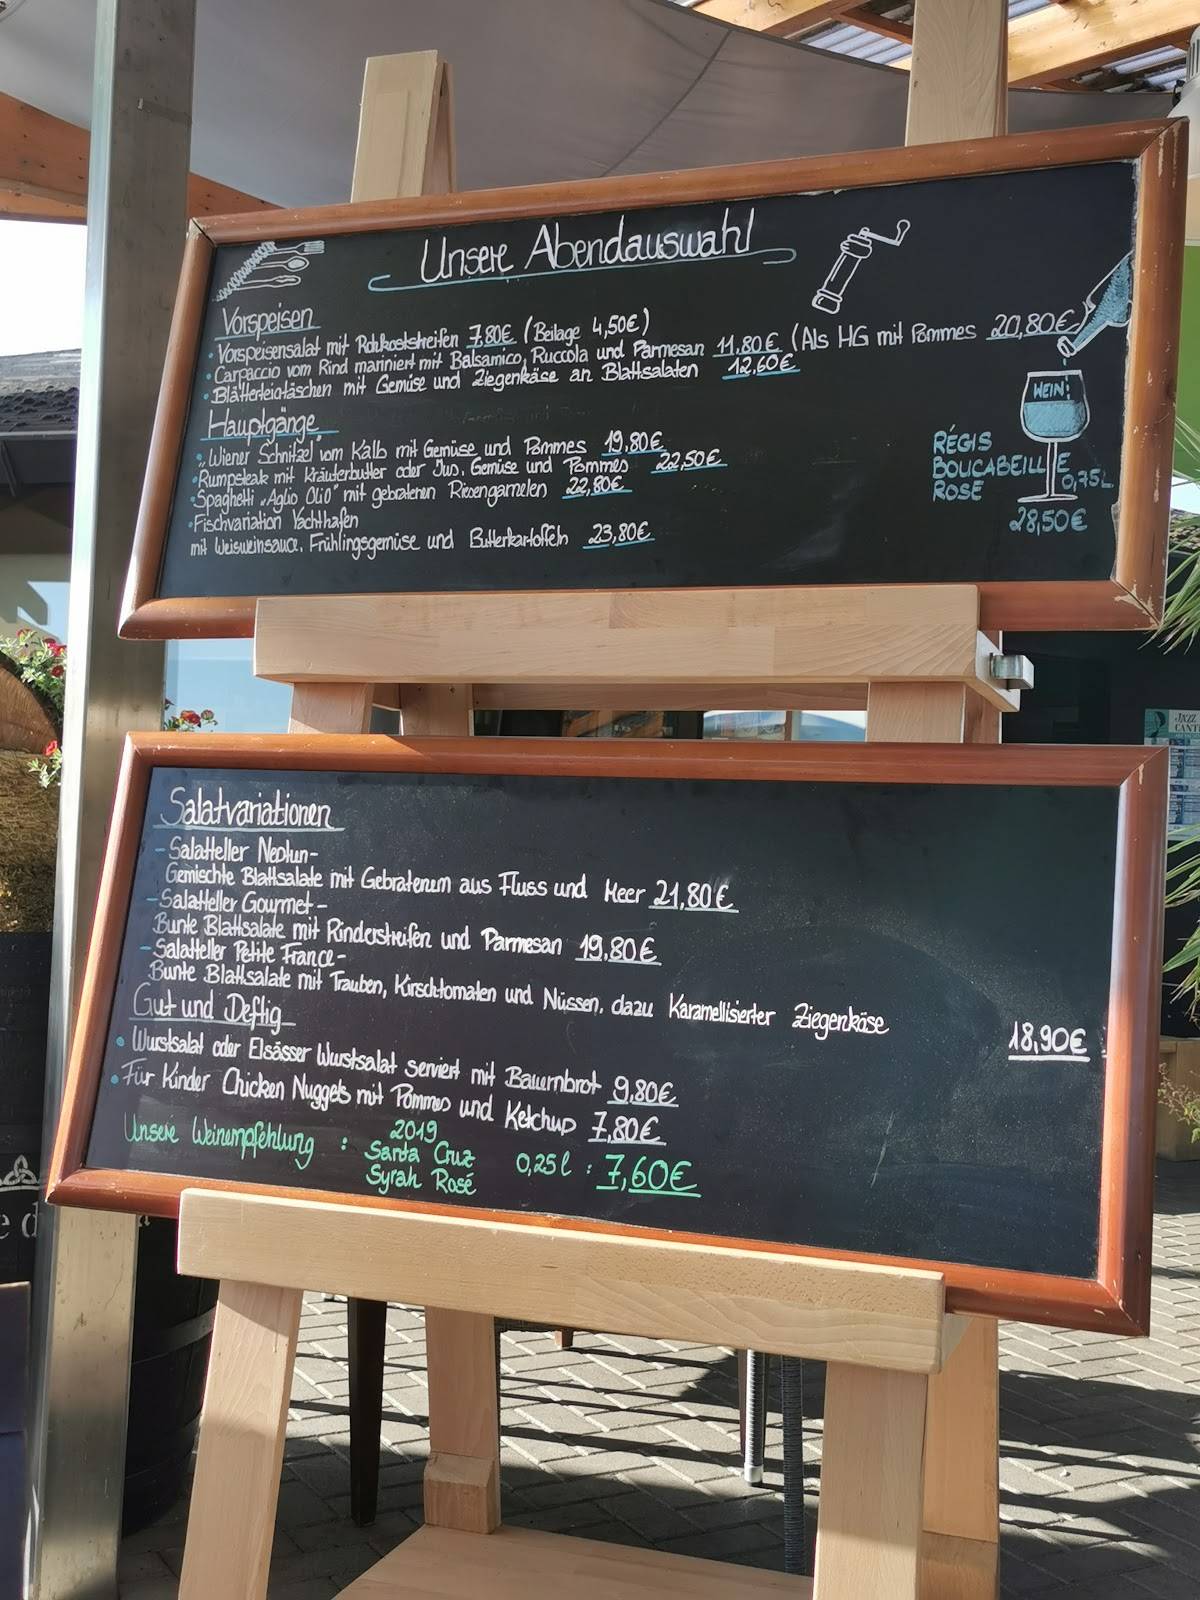 Unsere Abendauswahl
Vorspeisen
• Vorspeisensalat mit Rohkoststreifen 7,80€ (Beilage 4,50€)
• Carpaccio vom Rind mariniert mit Balsamico, Ruccola und Parmesan 11,80€ (Als HG mit Pommes 20,80€
• Blätterteigtäschen mit Gemüse und Ziegenkäse an Blattsalaten 12,60€
Hauptgänge
• „Wiener Schnitzel" vom Kalb mit Gemüse und Pommes 19,80€
• Rumpsteak mit Kräuterbutter oder Jus, Gemüse und Pommes 22,50€
• Spaghetti „Aglio Olio" mit gebratenen Riesengarnelen 22,80€
• Fischvariation Yachthafen
mit Weisweinsauce, Frühlingsgemüse und Butterkartoffeln 23,80€
WEIN!
RÉGIS
BOUCABEILLE
ROSE 0,75L
28,50€
Salatvariationen
- Salatteller Neptun-
Gemischte Blattsalate mit Gebratenem aus Fluss und Meer 21,80€
- Salatteller Gourmet-
Bunte Blattsalate mit Rinderstreifen und Parmesan 19,80€
- Salatteller Petite France-
Bunte Blattsalate mit Trauben, Kirschtomaten und Nüssen, dazu Karamellisierter Ziegenkäse 18,90€
Gut und Deftig
• Wurstsalat oder Elsässer Wurstsalat serviert mit Bauernbrot 9,80€
• Für Kinder Chicken Nuggets mit Pommes und Ketchup 7,80€
Unsere Weinempfehlung : 2019
Santa Cruz 0,25l : 7,60€
Syrah Rosé
JAZZ